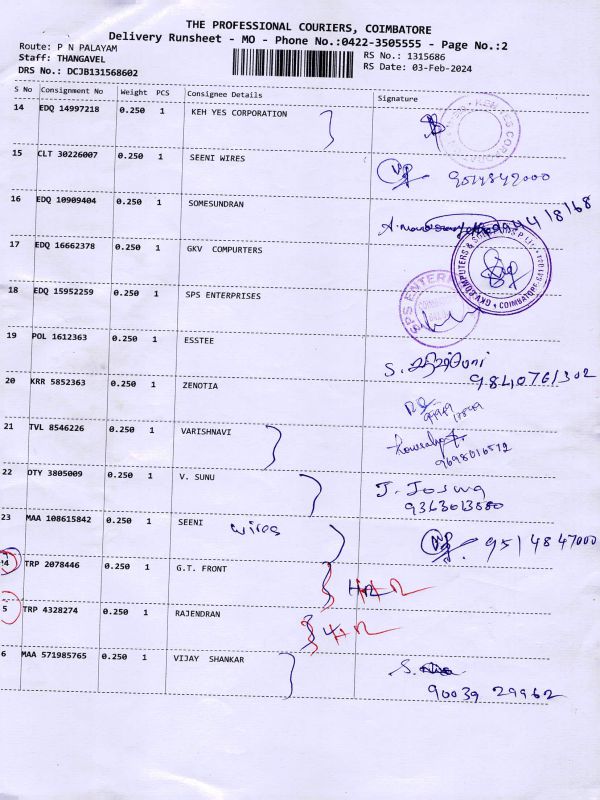 THE PROFESSIONAL COURIERS, COIMBATORE
Delivery Runsheet - MO - Phone No.:0422-3505555 - Page No.:2
Route: P N PALAYAM
RS No : 1315686
Staff: THANGAVEL
RS Date: 03-Feb-2024
DRS No.: DCJB131568602
S No Consignment No Weight PCS Consignee Details Signature
14 EDQ 14997218 0.250 1 KEH YES CORPORATION
15 CLT 30226007 0.250 1 SEENI WIRES
16 EDQ 10909404 0.250 1 SOMESUNDRAN
17 EDQ 16662378 0.250 1 GKV COMPURTERS
18 EDQ 15952259 0.250 1 SPS ENTERPRISES
19 POL 1612363 0.250 1 ESSTEE S.
9840761302
20 KRR 5852363 0.250 1 ZENOTIA
21 TVL 8546226 0.250 1 VARISHNAVI
9698016512
22 OTY 3805009 0.250 1 V. SUNU J. Joswa
9363013880
23 MAA 108615842 0.250 1 SEENI wires 9514847000
TRP 2078446 0.250 1 G.T. FRONT
5 TRP 4328274 0.250 1 RAJENDRAN
6 MAA 571985765 0.250 1 VIJAY SHANKAR S.
90039 29962